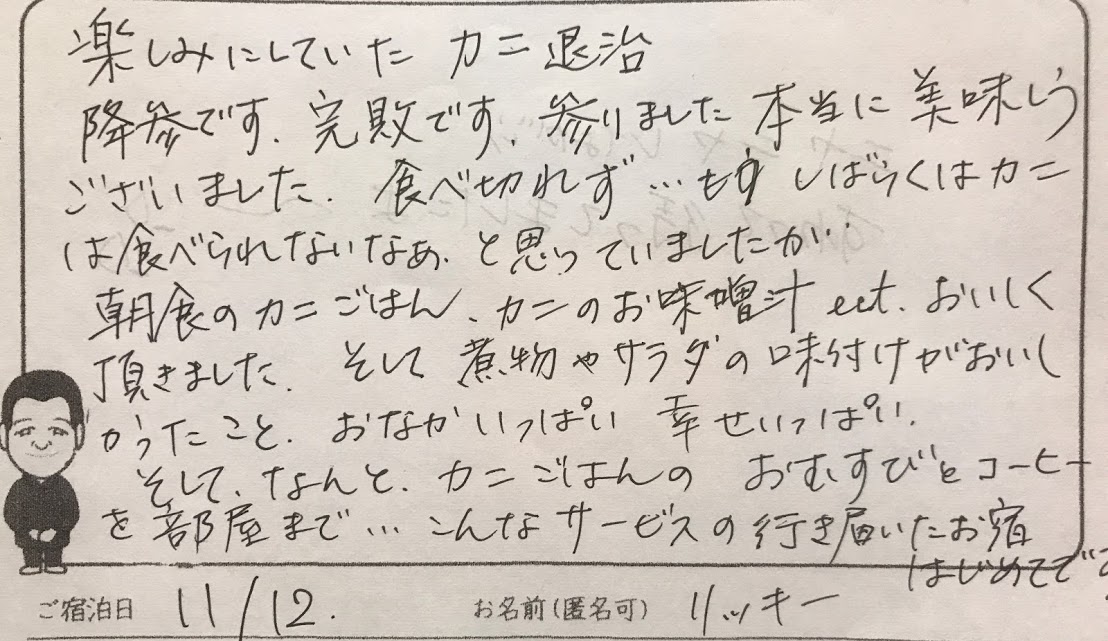 楽しみにしていた カニ退治
降参です. 完敗です. 参りました 本当に 美味しう
ございました. 食べ切れず… もう しばらくはカニ
は食べられないなぁ. と思っていましたが…
朝食のカニごはん、カニのお味噌汁 ect. おいしく
頂きました. そして 煮物やサラダの味付けがおいし
かったこと. おなかいっぱい 幸せいっぱい.
そして、なんと、カニごはんの おむすびとコーヒー
を部屋まで… こんなサービスの行き届いたお宿
はじめてです
ご宿泊日 11/12.
お名前(匿名可) リッキー